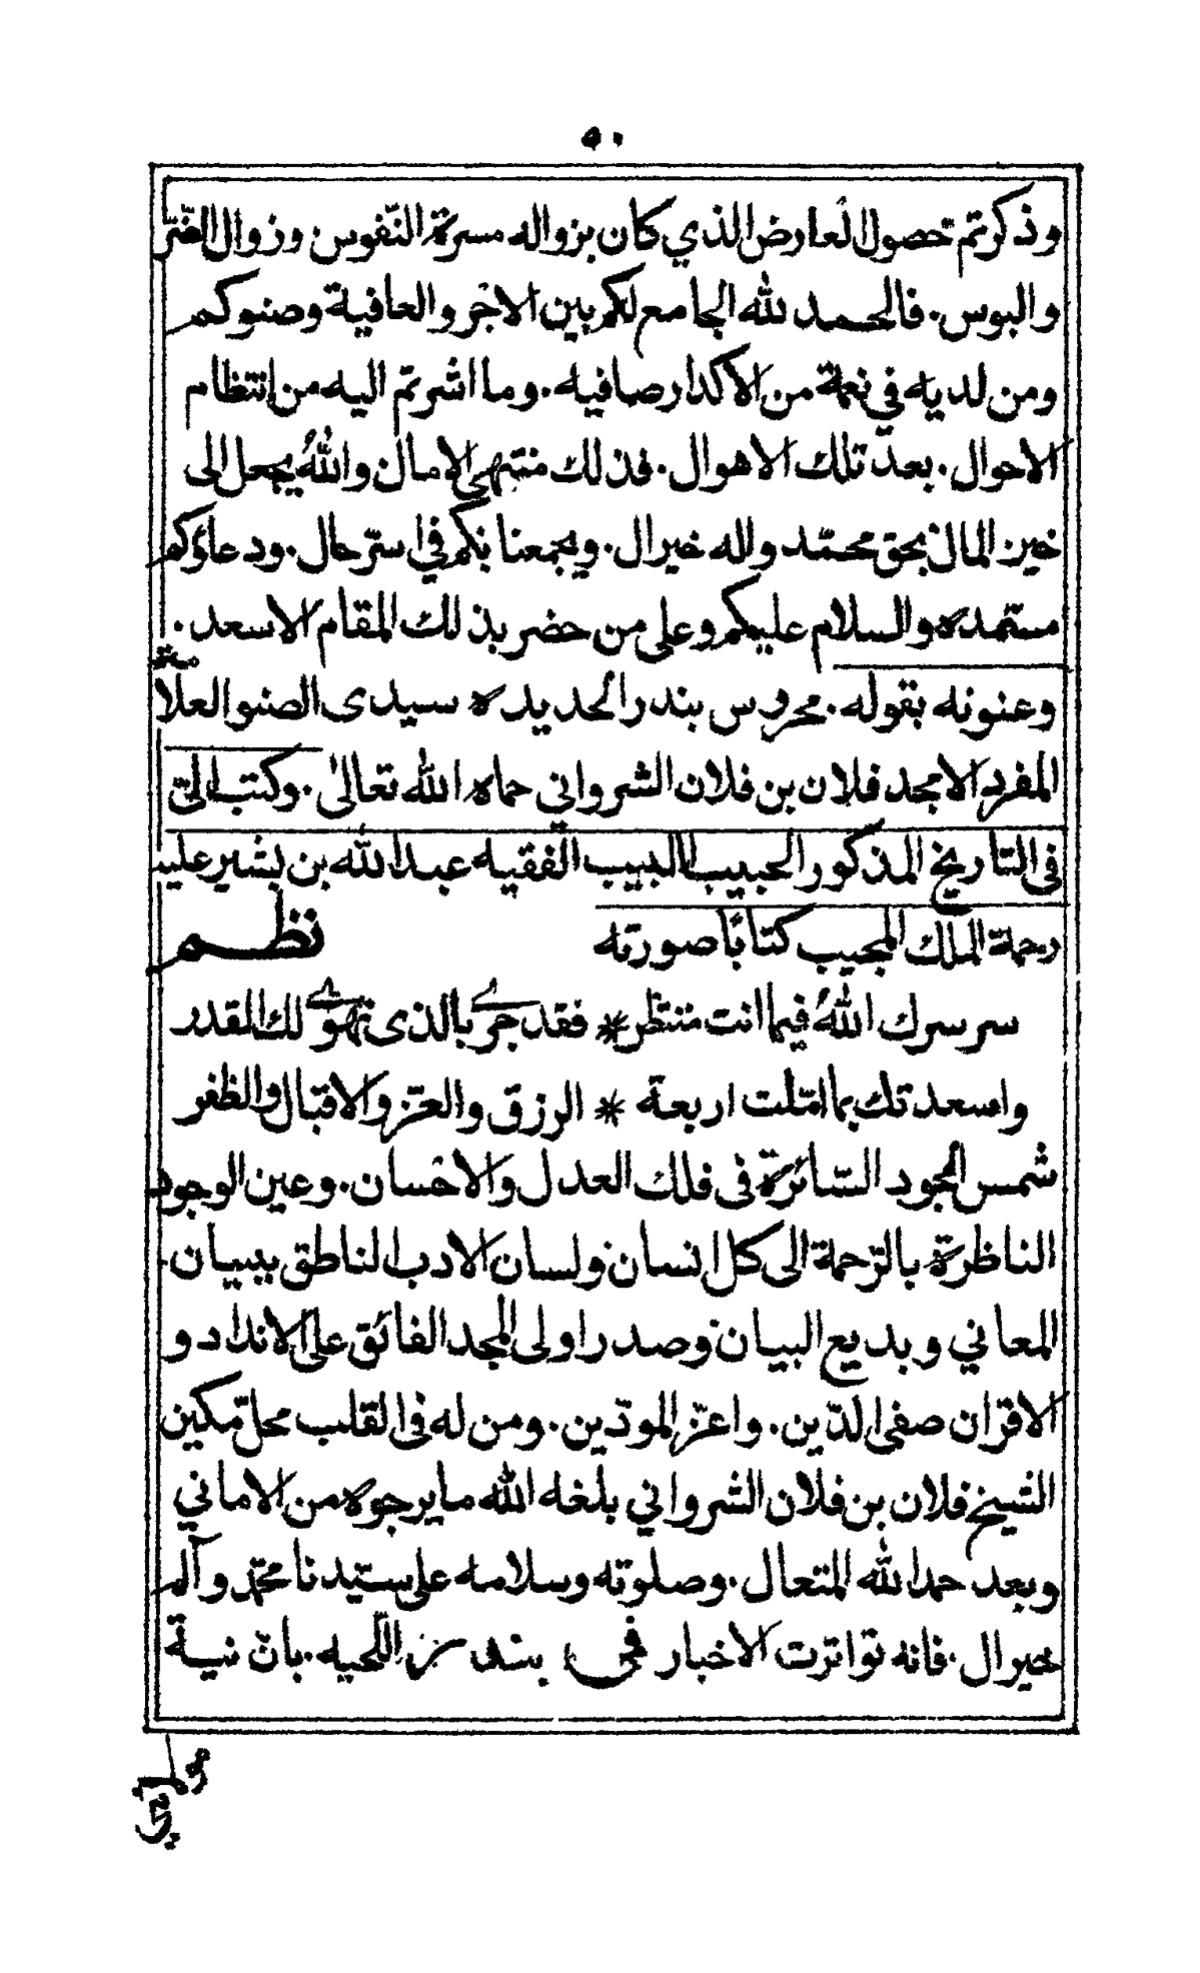 ٥٠
وذكرتم حصول العارض الذي كان بزواله مسرة النفوس. وزوال الضرّ
والبوس. فالحمد لله الجامع لكم بين الاجر والعافية وصنوكم
ومن لديه في نعمة من الاكدار صافيه. وما اشرتم اليه من انتظام
الاحوال. بعد تلك الاهوال. فذلك منتهى الامال والله يجعل الى
خير المال بحق محمّد واله خير ال. ويجمعنا بكم في اسرّ حال. ودعاؤكم
مستمده والسلام عليكم وعلى من حضر بذلك المقام الاسعد.
وعنونه بقوله. محروس بندر الحديده سيدى الصنو العلامة
المفرد الامجد فلان بن فلان الشرواني حماه الله تعالىٰ. وكتب اليّ
فى التاريخ المذكور الحبيب اللبيب الفقيه عبد الله بن بشير عليه
رحمة الملك المجيب كتابًا صورته نظم
سر سرك اللهُ فيما انت منتظر * فقد جرى بالذى تهوى لك القدر
واسعدتك بما امّلت اربعة * الرزق والعزّ والاقبال والظفر
شمس الجود السّائرة فى فلك العدل والاحسان. وعين الوجود
الناظرة بالرّحمة الى كل انسان ولسان الادب الناطق ببيان
المعاني وبديع البيان وصدر اولى المجد الفائق على الانداد و
الاقران صفى الدّين. واعزّ المودّين. ومن له فى القلب محلّ مكين
الشيخ فلان بن فلان الشرواني بلغه الله ما يرجوه من الاماني
وبعد حمد الله المتعال. وصلوته وسلامه على سيّدنا محمّد وآله
خير ال. فانه تواترت الاخبار فى بندر اللحيه. بانّ نية